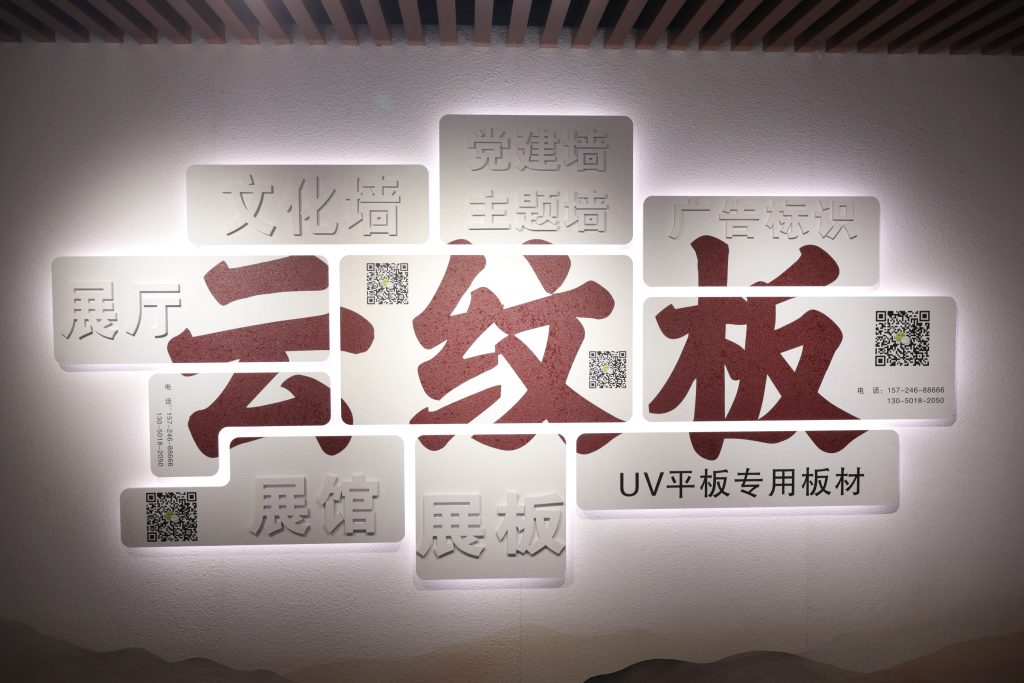 党建墙
主题墙
文化墙
广告标识
展厅
云纹板
电 话：157-246-88666
130-5018-2050
电 话：157-246-88666
130-5018-2050
UV平板专用板材
展馆
展板